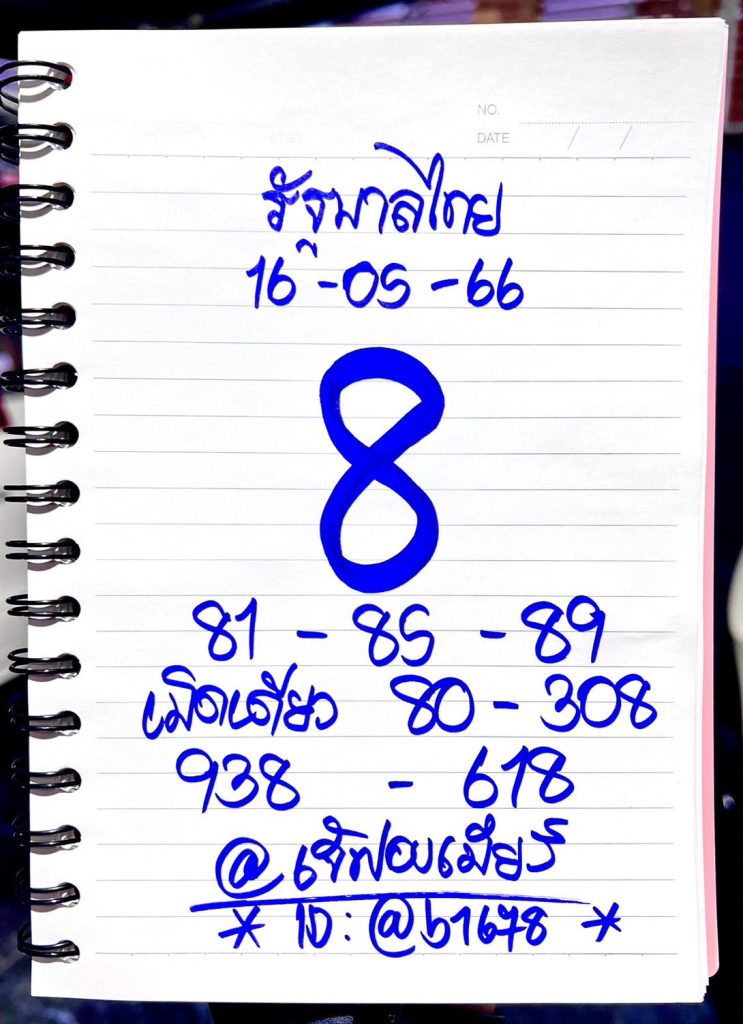 NO.
DATE / /
รัฐบาลไทย
16-05-66
8
81 - 85 - 89
เม็ดเดียว 80-308
938 - 618
@เจ๊ฟองเบียร์
* ID: @b1678 *